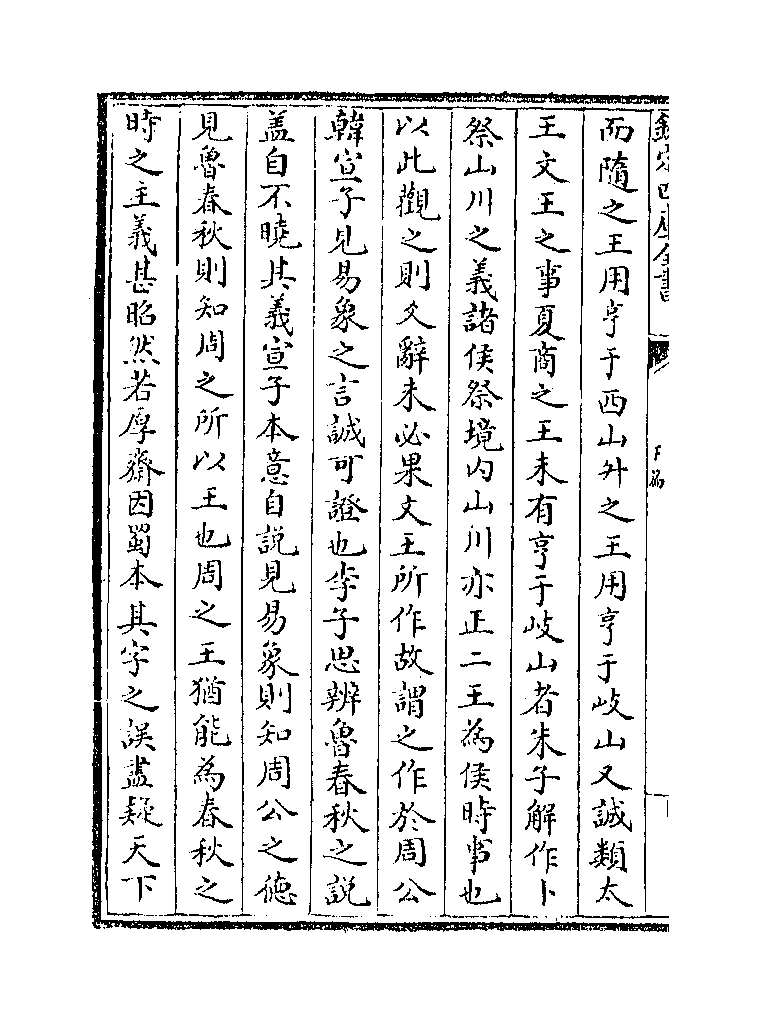 欽定四庫全書
下篇
而隨之王用亨于西山升之王用亨于岐山又誠類太
王文王之事夏商之王未有亨于岐山者朱子解作卜
祭山川之義諸侯祭境内山川亦正二王為侯時事也
以此觀之則爻辭未必果文王所作故謂之作於周公
韓宣子見易象之言誠可證也李子思辨魯春秋之説
盖自不曉其義宣子本意自説見易象則知周公之德
見魯春秋則知周之所以王也周之王猶能為春秋之
時之主義甚昭然若厚齋因蜀本其字之誤盡疑天下